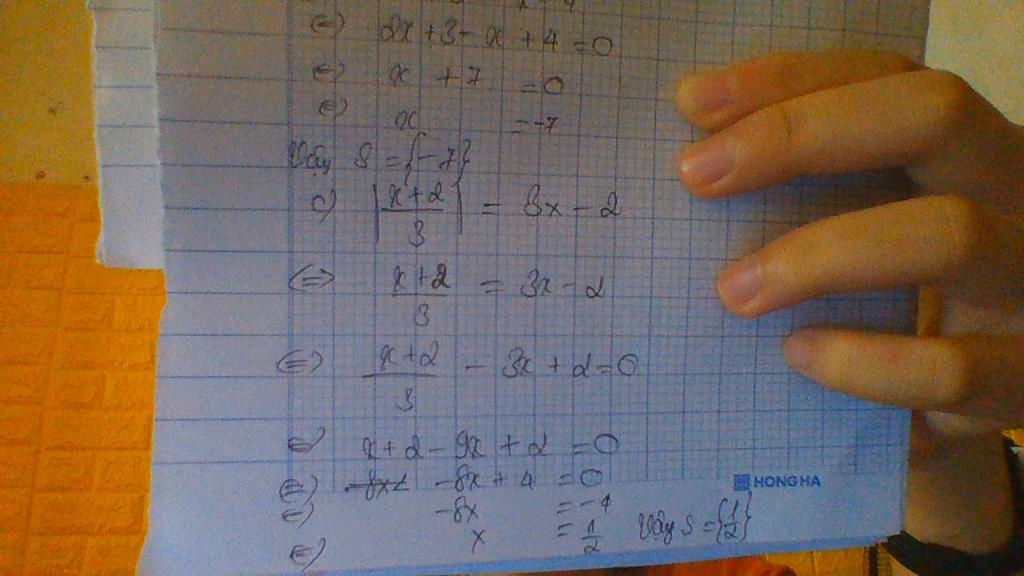 ⇔ 2x + 3 - x + 4 = 0
⇔ x + 7 = 0
⇔ x = -7
Vậy S = {-7}
c) |x+2/3| = 3x - 2
⇔ x+2/3 = 3x - 2
⇔ x+2/3 - 3x + 2 = 0
⇔ x + 2 - 9x + 2 = 0
⇔ -8x + 4 = 0
⇔ -8x = -4
⇔ x = 1/2 Vậy S = {1/2}
HONG HA